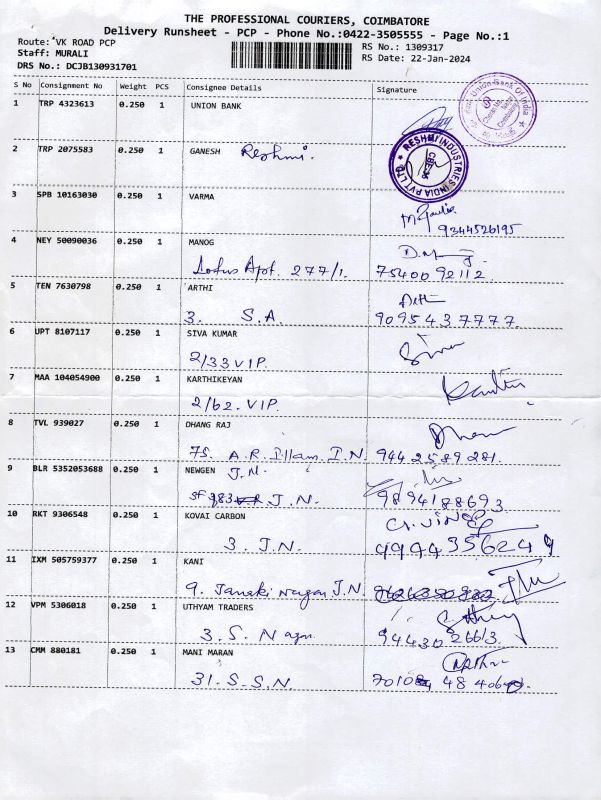 THE PROFESSIONAL COURIERS, COIMBATORE
Delivery Runsheet - PCP - Phone No.:0422-3505555 - Page No.:1
Route: VK ROAD PCP
Staff: MURALI
DRS No.: DCJB130931701
RS No.: 1309317
RS Date: 22-Jan-2024
S No Consignment No Weight PCS Consignee Details Signature
1 TRP 4323613 0.250 1 UNION BANK
Union Bank Of India
2 TRP 2075583 0.250 1 GANESH Reshmi.
RESHMI INDUSTRIES INDIA PVT LTD
CBE-35
3 SPB 10163030 0.250 1 VARMA
9344526195
4 NEY 50090036 0.250 1 MANOG
Lotus Apt. 277/1. 7540092112
5 TEN 7630798 0.250 1 ARTHI
3. S.A. 9095437777.
6 UPT 8107117 0.250 1 SIVA KUMAR
2/33 VIP. Siva
7 MAA 104054900 0.250 1 KARTHIKEYAN
2/62. VIP.
8 TVL 939027 0.250 1 DHANG RAJ
75. A.R. Illam. J.N. 9442589281.
9 BLR 5352053688 0.250 1 NEWGEN J.N.
SF 983 J.N. 9894188693
10 RKT 9306548 0.250 1 KOVAI CARBON
3. J.N. 9994356249
11 IXM 505759377 0.250 1 KANI
9. Janaki Nagar J.N.
12 VPM 5306018 0.250 1 UTHYAM TRADERS
3. S. Nagar. 9443026613.
13 CMM 880181 0.250 1 MANI MARAN
31. S.S.N